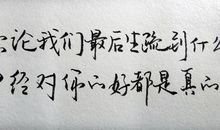 论我们最后生疏到什么
经对你的好都是真的